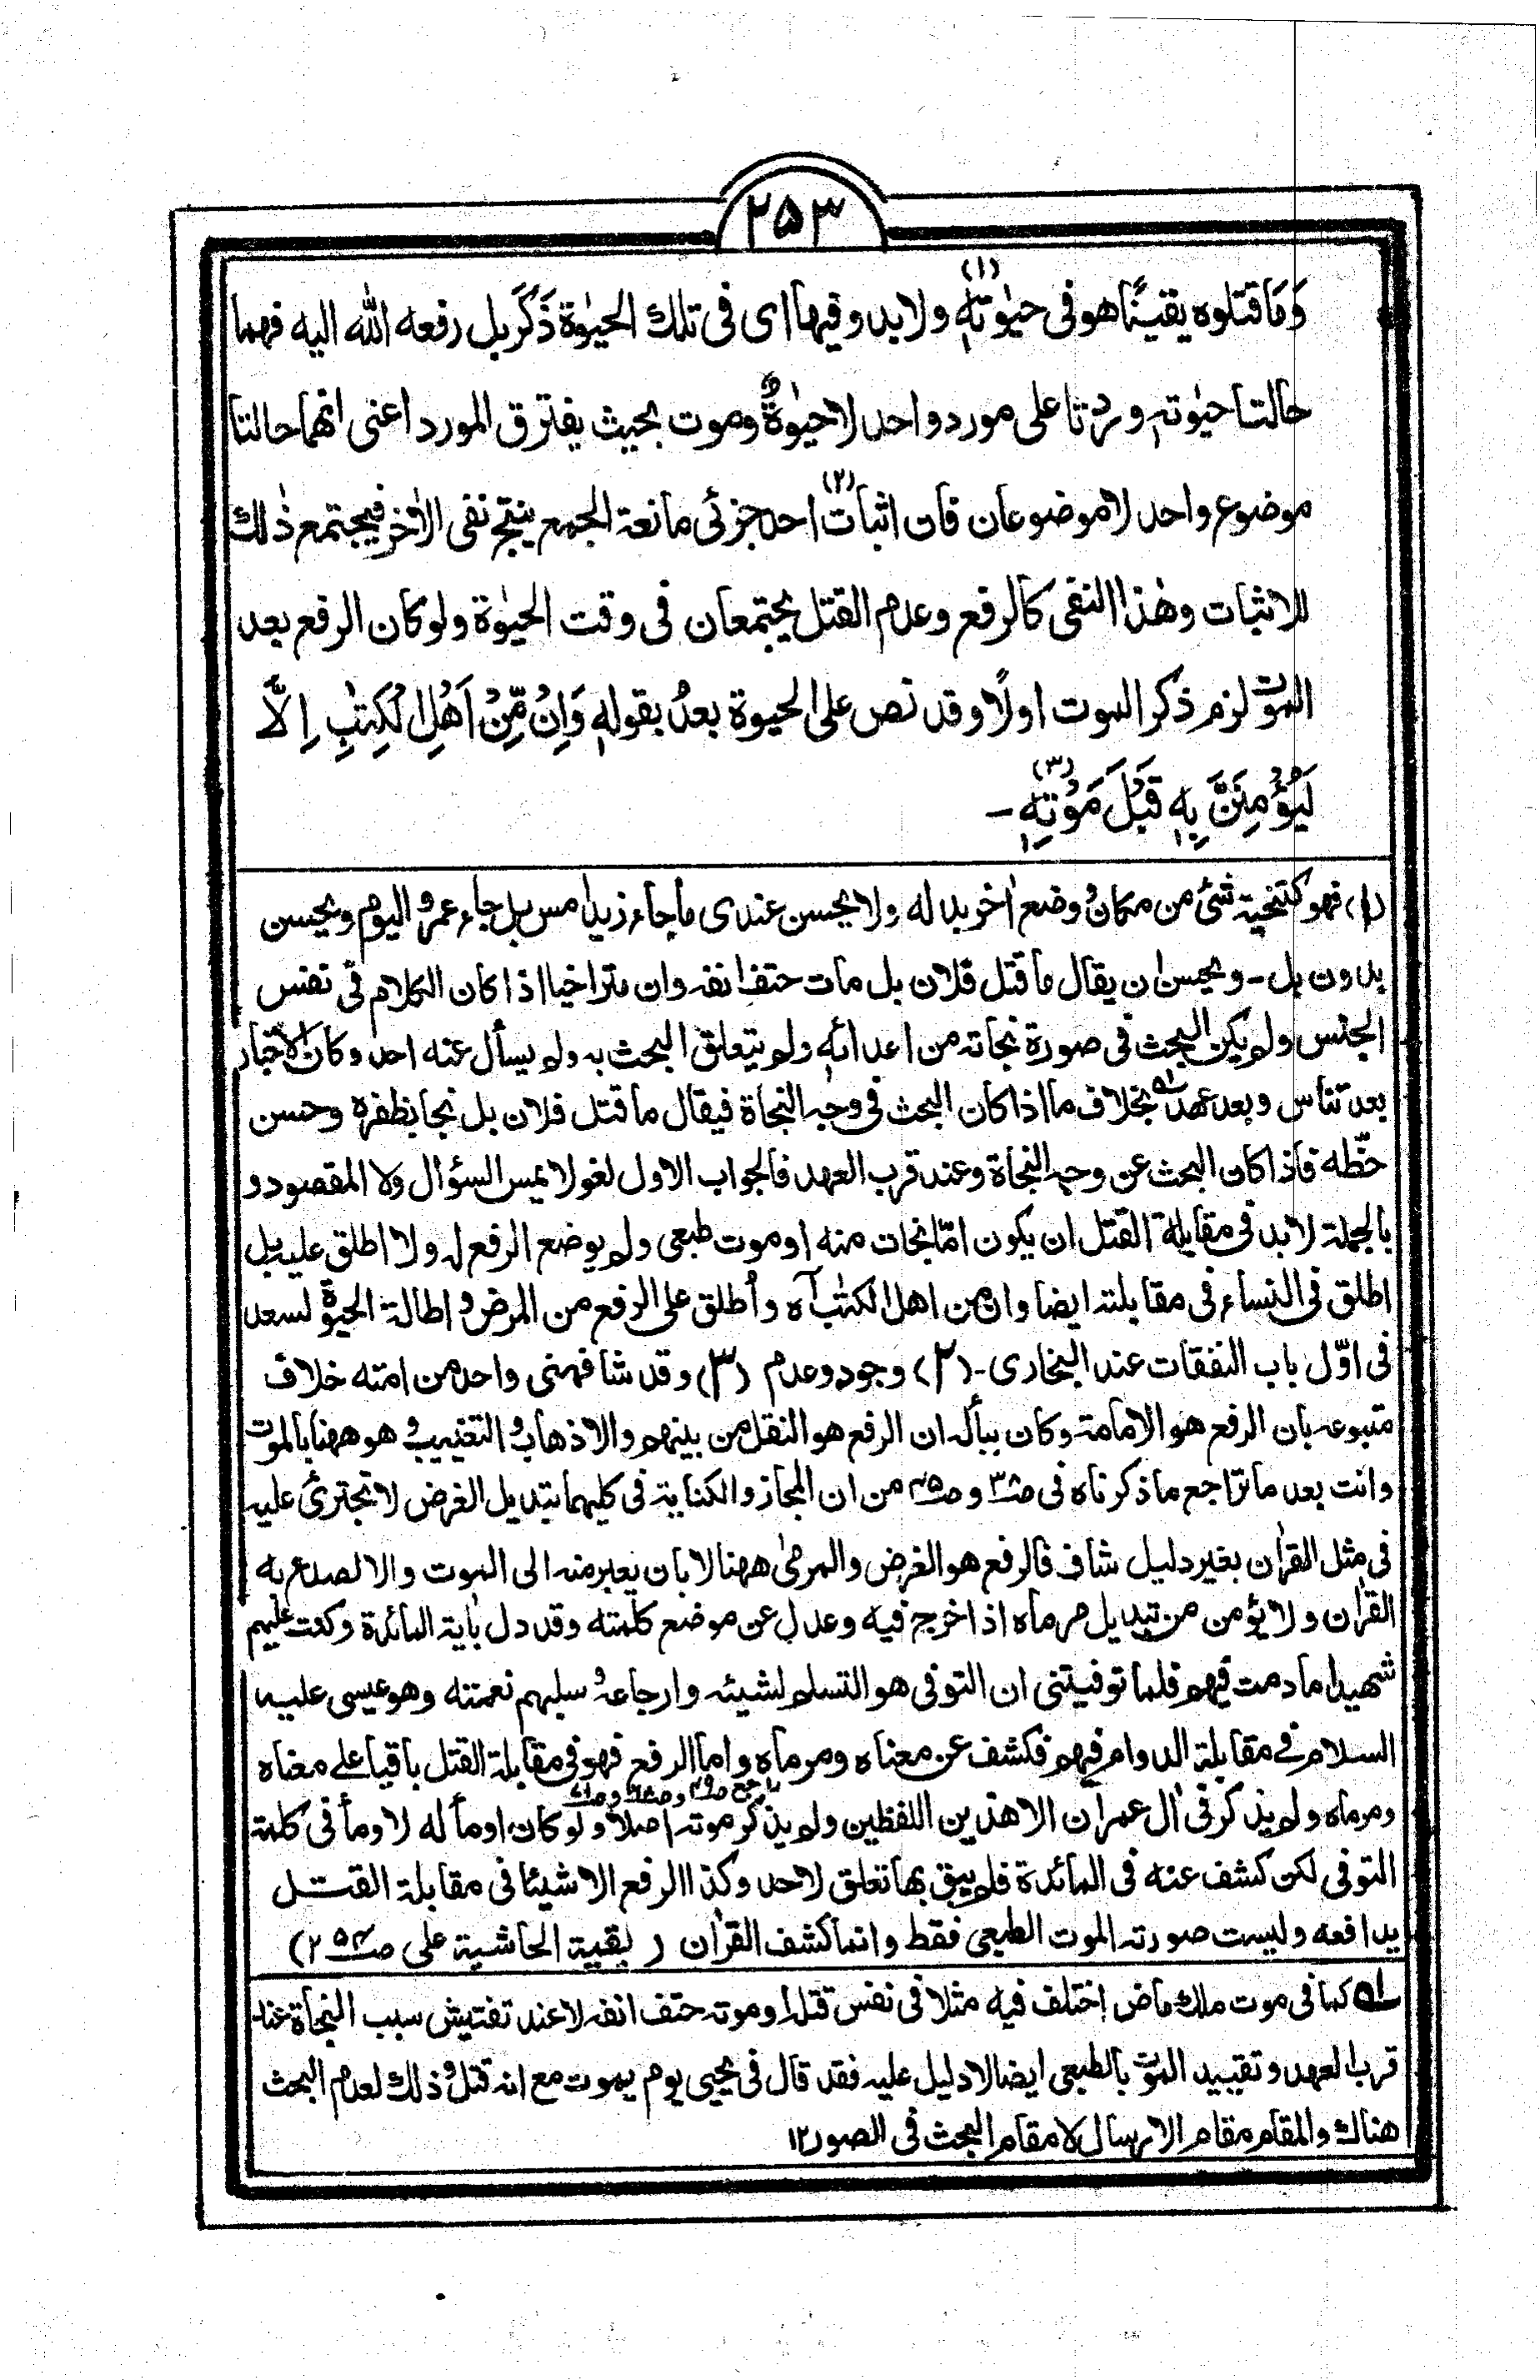 ٢٥٣
وَمَا قتلوه يقينًا هو فى حيٰوته(١) ولا بد وفيها اى فى تلك الحيٰوة ذَكَرَ بل رفعه الله اليه فهما
حالتا حيٰوته وردتا على مورد واحد لا حيٰوةٌ وموت بحيث يفترق المورد اعنى انهما حالتا
موضوع واحد لا موضوعان فان اثبات(٢) احد جزئى مانعة الجمع ينتج نفى الاٰخر فيجتمع ذٰلك
للاثبات وهٰذا النفى كالرفع وعدم القتل يجتمعان فى وقت الحيٰوة ولو كان الرفع بعد
الموت لزم ذكر الموت اولًا وقد نص على الحيوة بعدُ بقوله وَاِنْ مِّنْ اَهْلِ الْكِتٰبِ اِلَّا
لَيُؤْمِنَنَّ بِهٖ قَبْلَ مَوْتِهٖ(٣) ۔
(١) فهو كتنحية شئ من مكان ووضع اٰخر بدله ولا يحسن عندى ما جاء زيد امس بل جاء عمرو اليوم ويحسن
بدون بل ۔ ويحسن ان يقال ما قتل فلان بل مات حتف انفه وان متراخيا اذا كان الكلام فى نفس
الجنس ولم يكن البحث فى صورة نجاته من اعدائه ولم يتعلق البحث به ولم يسأل عنه احد وكان الاخبار
بعد تناس وبعد عهد ۱ه بخلاف ما اذا كان البحث فى وجه النجاة فيقال ما قتل فلان بل نجا بظفره وحسن
حظّه فاذا كان البحث عن وجه النجاة وعند قرب العهد فالجواب الاول لغو لا يمس السؤال ولا المقصود و
بالجملة لا بد فى مقابلة القتل ان يكون امّا نجات منه او موت طبعى ولم يوضع الرفع له ولا اطلق عليه بل
اطلق فى النساء فى مقابلته ايضا وان من اهل الكتٰب آه وأطلق على الرفع من المرض و اطالة الحيوة لسعد
فى اوّل باب النفقات عند البخارى ۔ (٢) وجود وعدم (٣) وقد شافهنى واحد من امته خلاف
متبوعه بان الرفع هو الامامة وكان بباله ان الرفع هو النقل من بينهم والاذهاب و التغييب و هو ههنا بالموت
وانت بعد ما تراجع ما ذكرناه فى صـ۳۸ و صـ۴۵ من ان المجاز والكناية فى كليهما تبديل الغرض لا تجترئ عليه
فى مثل القراٰن بغير دليل شاف فالرفع هو الغرض والمرمىٰ ههنا لا بان يعبر منه الى الموت والا لصدع به
القراٰن ولا يؤمن من تبديل مرماه اذا خرج فيه وعدل عن موضع كلمته وقد دل باٰية المائدة وكنت عليهم
شهيدا ما دمت فيهم فلما توفيتنى ان التوفى هو التسلم لشيئه وارجاعهُ و سلبهم نعمته وهو عيسى عليه
السلام فى مقابلة الدوام فيهم فكشف عن معناه ومرماه واما الرفع فهو فى مقابلة القتل باقيا على معناه
ومرماه ولم يذكر فى اٰل عمران الا هٰذين اللفظين ولم يذكر موته اصلا ولو كان اومأ له لاومأ فى كلمة
التوفى لكن كشف عنه فى المائدة فلم يبق بها تعلق لاحد وكذا الرفع الا شيئا فى مقابلة القتل
يدافعه وليست صورته الموت الطبعى فقط وانما كشف القراٰن ( بقية الحاشية على صـ۲۵۴ )
۱ه كما فى موت ملك ماض اختلف فيه مثلا فى نفس قتله او موته حتف انفه لا عند تفتيش سبب النجاة عند
قرب العهد وتقييد الموت بالطبعى ايضا لا دليل عليه فقد قال فى يحيى يوم يموت مع انه قتل و ذلك لعدم البحث
هناك والمقام مقام الارسال لا مقام البحث فى الصور ۱۲